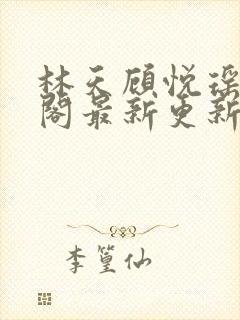 林天顾悦瑶
阁最新更新
李篁仙